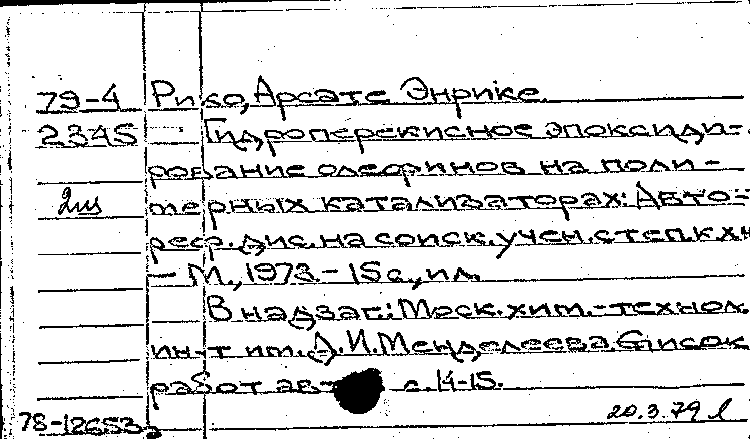 79-4 Рико, Арсате Энрике.
2345 Гидроперекисное эпоксиди-
рование олефинов на поли-
2ш мерных катализаторах: Авто-
реф. дис. на соиск. учен. степ. к.х.н
- М., 1978. - 15 с., ил.
В надзаг.: Моск. хим.-технол.
ин-т им. Д. И. Менделеева. Список
работ авт с. 14-15.
78-12653
20.3.79